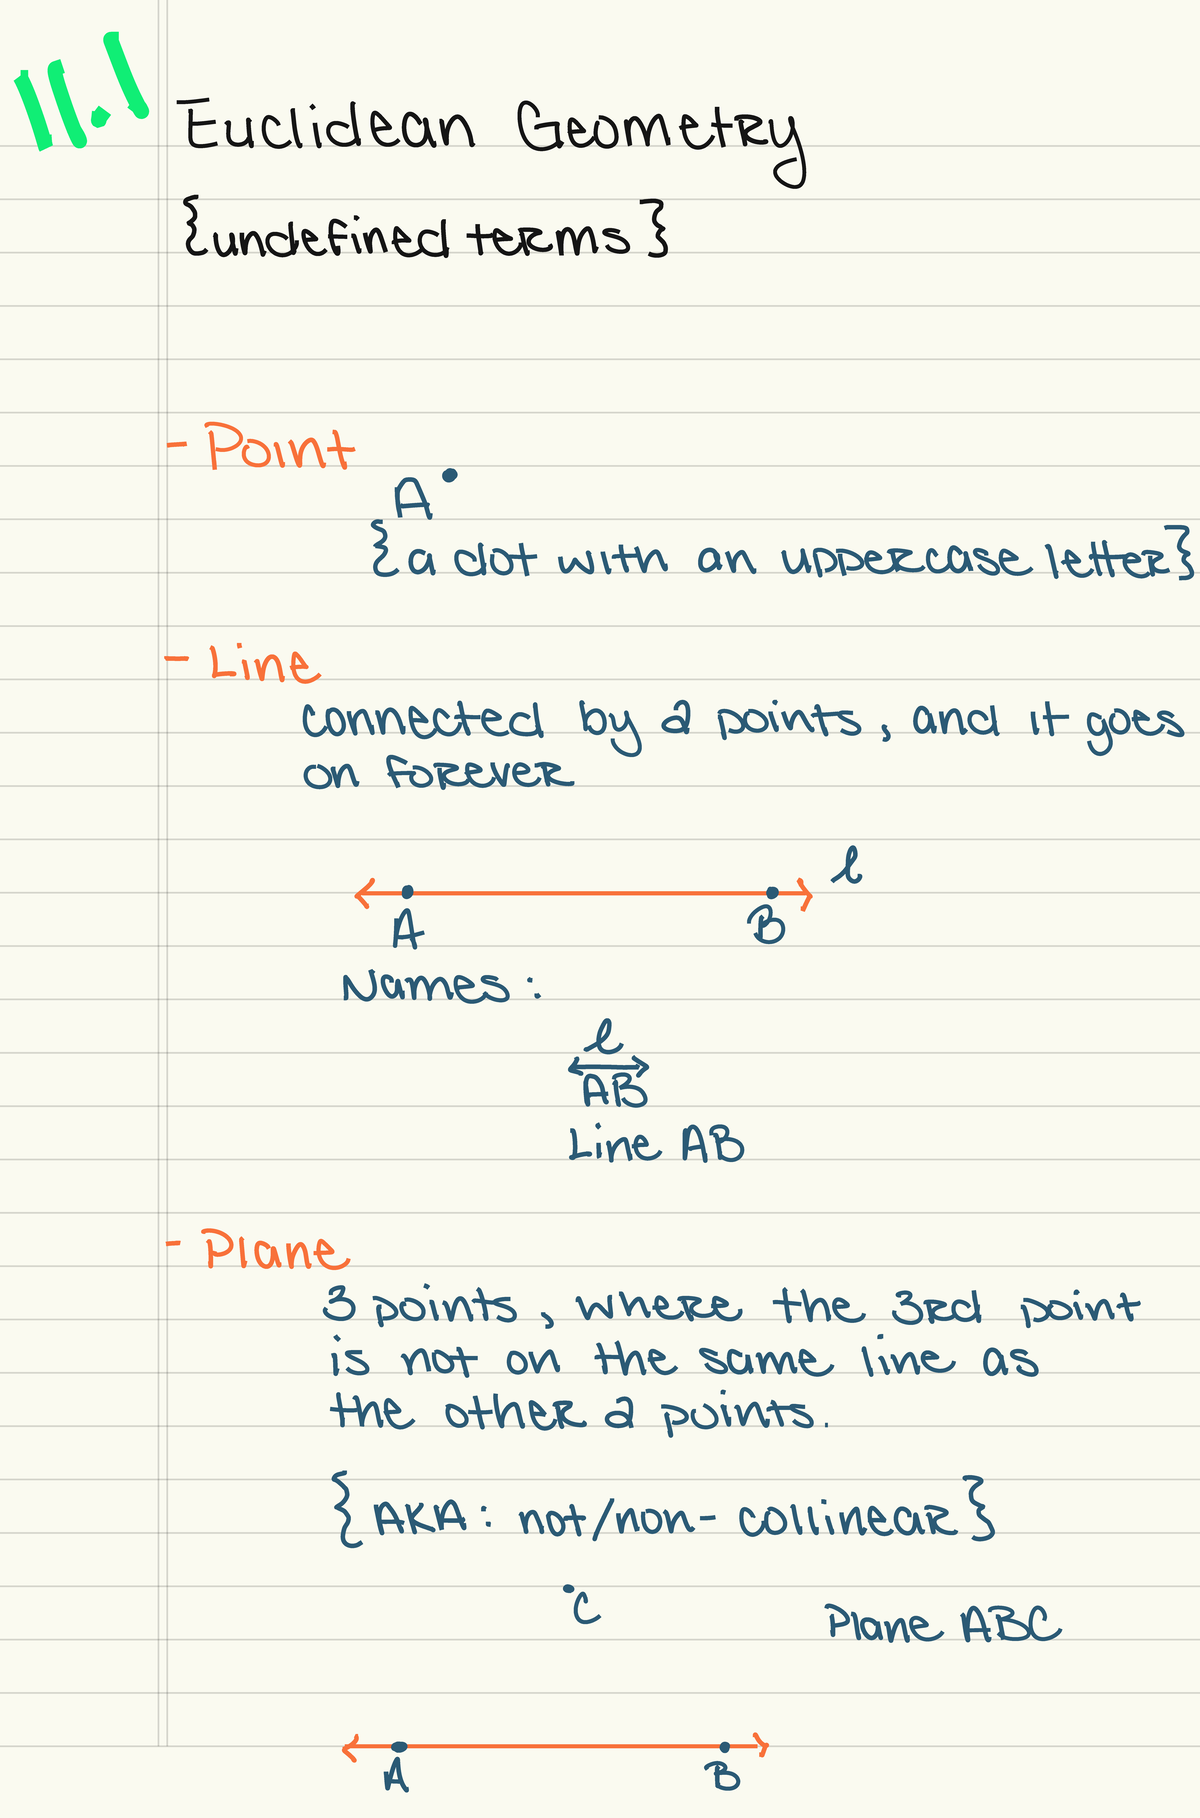 11.1
Euclidean Geometry
{undefined terms}
- Point
A
{a dot with an uppercase letter}
- Line
connected by 2 points, and it goes
on forever
ℓ
A B
Names:
ℓ
AB
Line AB
- Plane
3 points, where the 3rd point
is not on the same line as
the other 2 points.
{AKA: not/non-collinear}
C
Plane ABC
A B